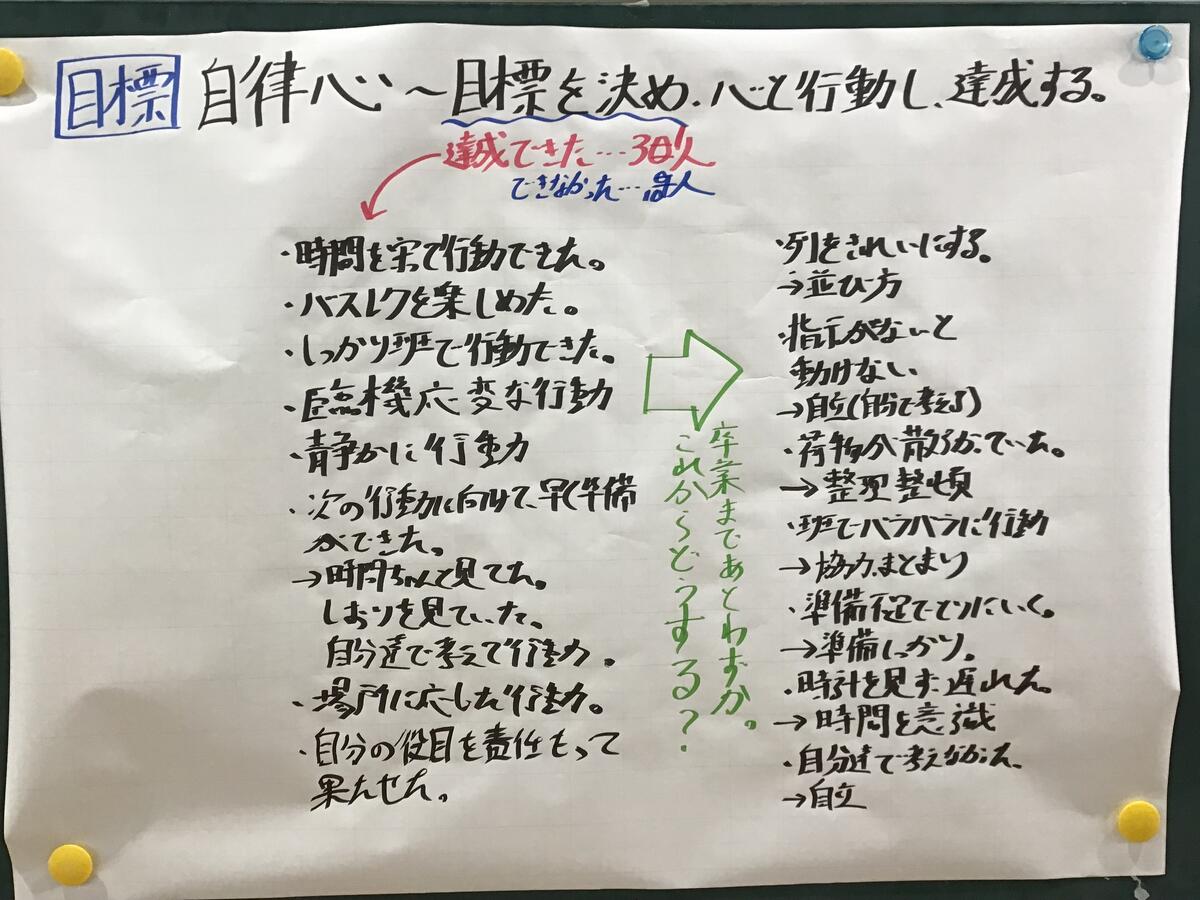 目標 自律心～目標を決め、心と行動し、達成する。
達成できた…30人
できなかった…人
・時間を守って行動できた。
・バスレクを楽しめた。
・しっかり班で行動できた。
・臨機応変な行動
・静かに行動
・次の行動に向けて、早く準備
ができた。
→時間ちゃんと見てた。
しおりを見ていた。
自分達で考えて行動。
・場所に応じた行動。
・自分の役目を責任もって
果たせた。
卒業まであとわずか。
これからどうする？
・列をきれいにする。
→並び方
・指示がないと
動けない
→自立(自分で考える)
・荷物が散らかっていた。
→整理整頓
・班でバラバラに行動
→協力、まとまり
・準備不足でとりにいく。
→準備しっかり。
・時計を見ず、遅れた。
→時間を意識
・自分達で考えなかった、
→自立